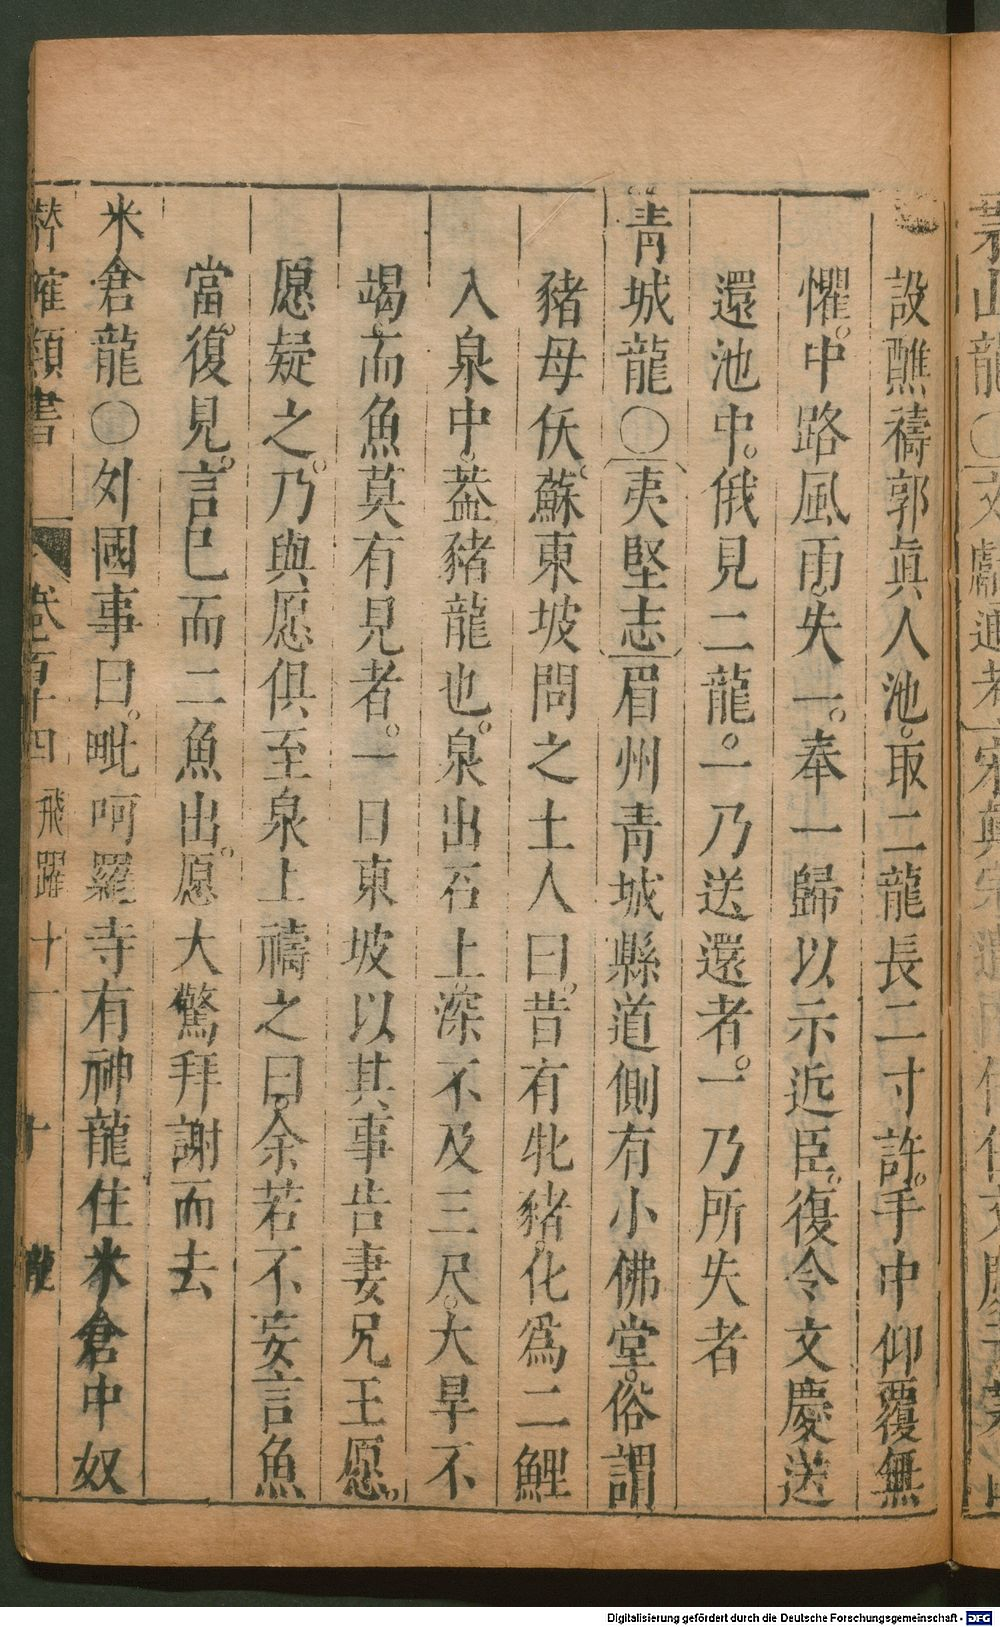 設醮禱郭眞人池。取二龍長二寸許。手中仰覆無
懼。中路風雨。失一。奉一歸以示近臣。復令文慶送
還池中。俄見二龍。一乃送還者。一乃所失者
青城龍○〔夷堅志〕眉州青城縣道側有小佛堂。俗謂
豬母佛。蘇東坡問之土人曰。昔有牝豬。化爲二鯉
入泉中。葢豬龍也。泉出石上。深不及三尺。大旱不
竭。而魚莫有見者。一日東坡以其事告妻兄王愿。
愿疑之。乃與愿俱至泉上禱之曰。余若不妄言魚
當復見。言已而二魚出。愿大驚拜謝而去
米倉龍○外國事曰。毗呵羅寺有神龍住米倉中奴
類書 卷百十四 飛躍 十一 十 龍
Digitalisierung gefördert durch die Deutsche Forschungsgemeinschaft - DFG